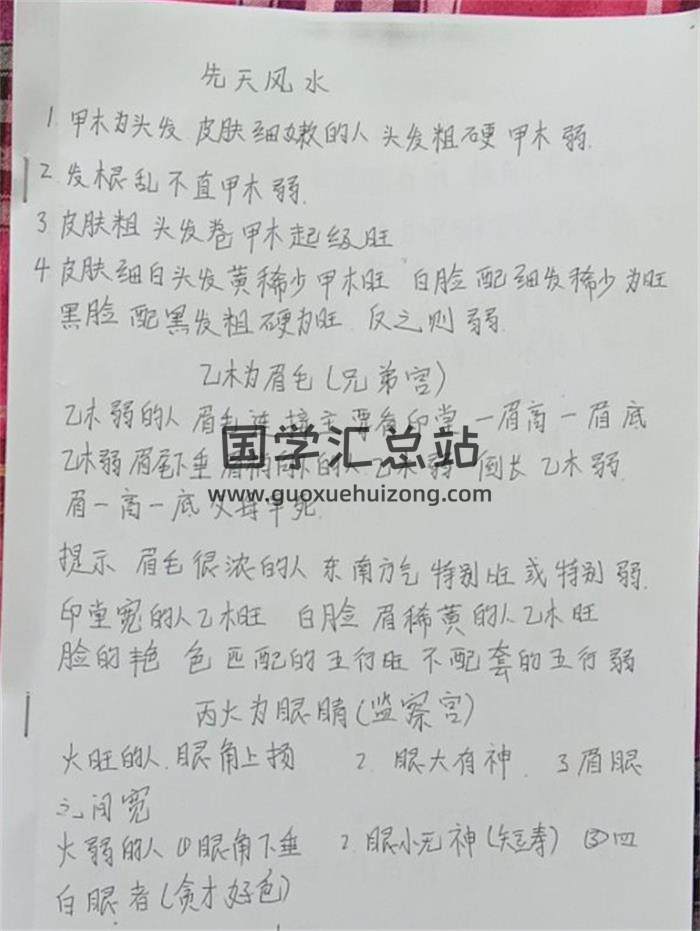 先天风水
1 甲木为头发 皮肤细嫩的人 头发粗硬 甲木弱.
2. 发根乱不直甲木弱.
3 皮肤粗 头发卷 甲木起级旺
4 皮肤细白头发黄稀少甲木旺 白脸配细发稀少为旺
黑脸配黑发粗硬为旺. 反之则弱.
乙木为眉毛(兄弟宫)
乙木弱的人 眉毛连接主要看印堂 一眉高一眉底
国学汇总站
乙木弱 眉尾下垂 的人 乙木弱 倒长 乙木弱.
www.guoxuehuizong.com
眉一高一底 早死.
提示 眉毛很浓的人 东南方气特别旺或特别弱.
印堂宽的人乙木旺 白脸 眉稀黄的人乙木旺
脸的艳 色匹配的五行旺 不配套的五行弱
丙火为眼睛(监察宫)
火旺的人. 眼角上扬 2. 眼大有神. 3 眉眼
之间宽
火弱的人 ①眼角下垂 2. 眼小无神(短寿) ③四
白眼者(贪才好色)